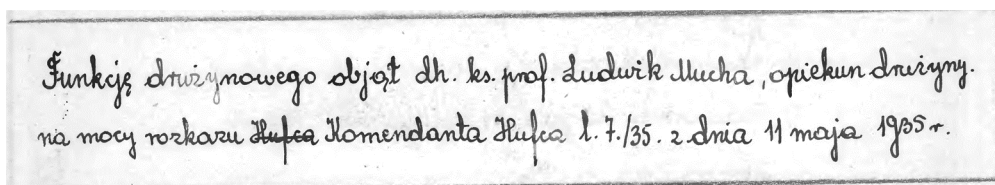 Funkcję drużynowego objął dh. ks. prof. Ludwik Mucha, opiekun drużyny.
na mocy rozkazu Hufca Komendanta Hufca l. 7./35. z dnia 11 maja 1935 r.